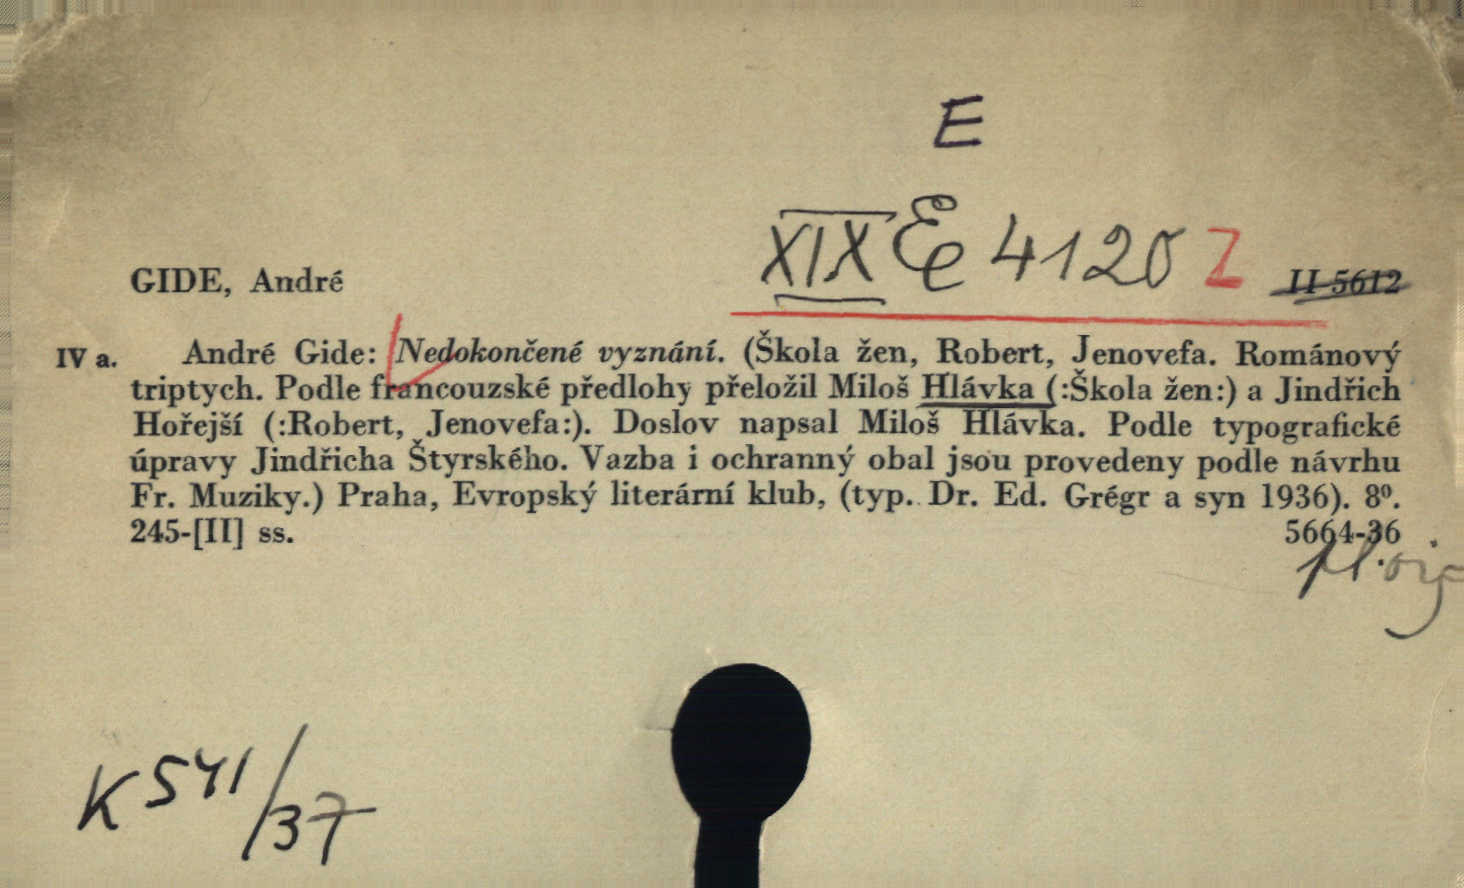 E
XIX E 4120 Z
GIDE, André II 5612
IV a. André Gide: Nedokončené vyznání. (Škola žen, Robert, Jenovefa. Románový
triptych. Podle francouzské předlohy přeložil Miloš Hlávka (:Škola žen:) a Jindřich
Hořejší (:Robert, Jenovefa:). Doslov napsal Miloš Hlávka. Podle typografické
úpravy Jindřicha Štyrského. Vazba i ochranný obal jsou provedeny podle návrhu
Fr. Muziky.) Praha, Evropský literární klub, (typ. Dr. Ed. Grégr a syn 1936). 8º.
245-[II] ss. 5664-36
K 541/37